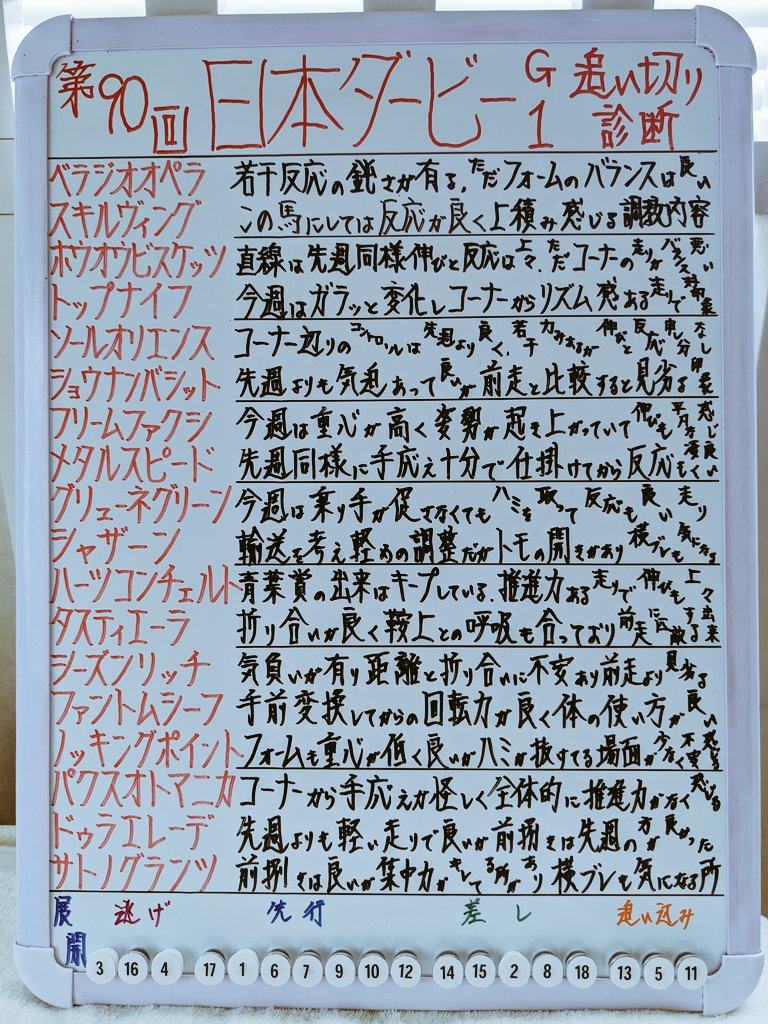 第90回 日本ダービー G1 追い切り診断
ベラジオオペラ 若干反応の鈍さが有る,ただフォームのバランスは良い
スキルヴィング この馬にしては反応が良く上積み感じる調教内容
ホウオウビスケッツ 直線は先週同様伸びと反応は上々,ただコーナーの走りがバランス悪い
トップナイフ 今週はガラッと変化しコーナーからリズム感ある走りで好印象
ソールオリエンス コーナー辺りのコントロールは先週より良く,若干力みあるが伸びと反応申し分なし
ショウナンバシット 先週よりも気迫あって良いが前走と比較すると見劣る印象
フリームファクシ 今週は重心が高く姿勢が起き上がっていて伸びも平凡な感じ
メタルスピード 先週同様に手応え十分で仕掛けてから反応も凄く良い
グリューネグリーン 今週は乗り手が促さなくてもハミを取って反応も良い走り
シャザーン 輸送を考え軽めの調整だがトモの開きがあり横ブレも気になる
ハーツコンチェルト 青葉賞の出来はキープしている,推進力ある走りで伸びも上々
タスティエーラ 折り合いが良く鞍上との呼吸も合っており前走に匹敵する出来
シーズンリッチ 気負いが有り距離と折り合いに不安あり前走より見劣る
ファントムシーフ 手前変換してからの回転力が良く体の使い方が良い
ノッキングポイント フォームも重心が低く良いがハミが抜けてる場面が少なく不安感じる
パクスオトマニカ コーナーから手応えが怪しく全体的に推進力がなく感じる
ドゥラエレーデ 先週よりも軽い走りで良いが前捌きは先週の方が良かった
サトノグランツ 前捌きは良いが集中力がキレてる所があり横ブレも気になる所
展開 逃げ 先行 差し 追い込み
3 16 4 17 1 6 7 9 10 12 14 15 2 8 18 13 5 11